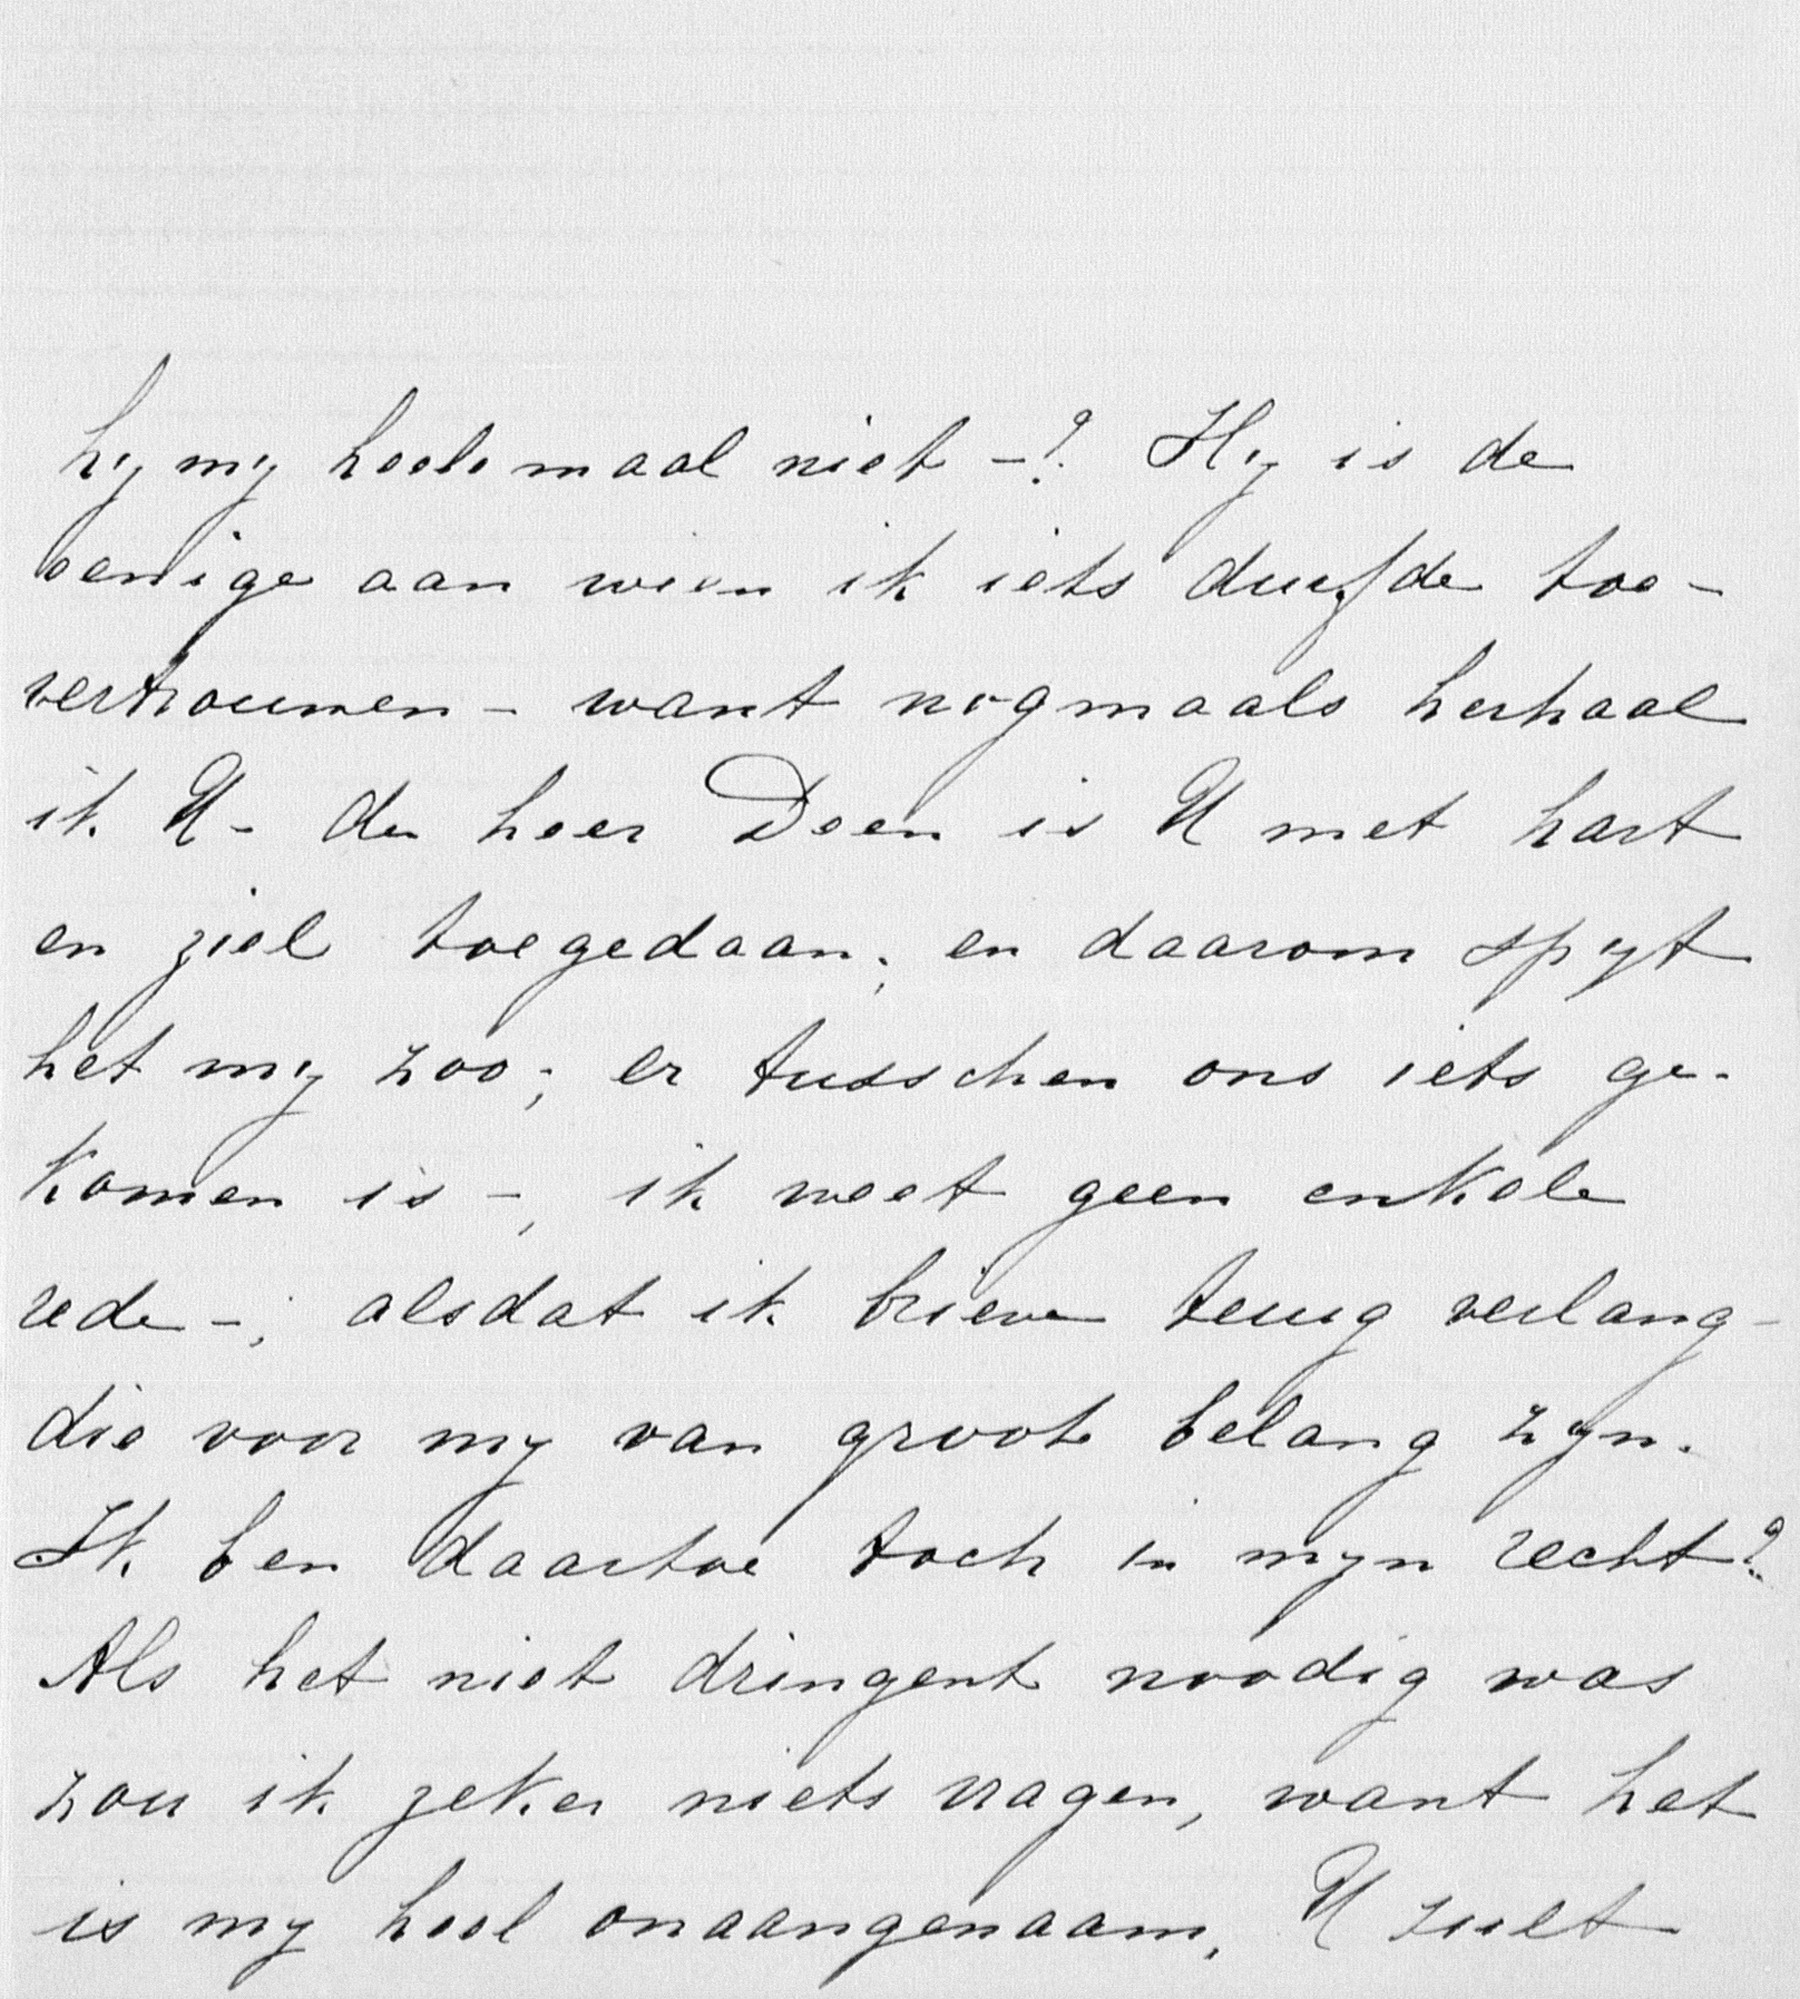 hij mij heelemaal niet -? Hij is de
eenige aan wien ik iets durfde toe-
vertrouwen - want nogmaals herhaal
ik U - de heer Deen is U met hart
en ziel toegedaan; en daarom spijt
het mij zoo; er tusschen ons iets ge-
komen is -, ik weet geen enkele
rede -; alsdat ik brieve terug verlang -
die voor mij van groote belang zijn.
Ik ben daartoe toch in mijn recht?
Als het niet dringent noodig was
zou ik zeker niets vragen, want het
is mij heel onaangenaam. U zult